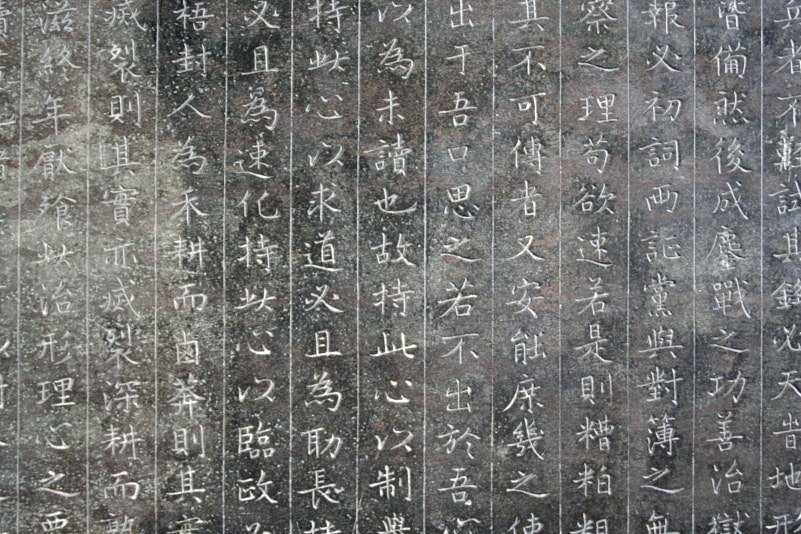 兵者不輕試其鋒必天時地形
備然後成鏖戰之功善治獄
報必初詞两証黨與對簿之無
察之理苟欲速若是則糟粕粗
其不可傳者又安能庶幾之使
出于吾口思之若不出於吾心
以為未讀也故持此心以制
持此心以求道必且為助長持
必且為速化持此心以臨政
梧封人為禾耕而鹵莽則其實
烕裂則其實亦烕裂深耕而
滋終年厭飱以治形理心之